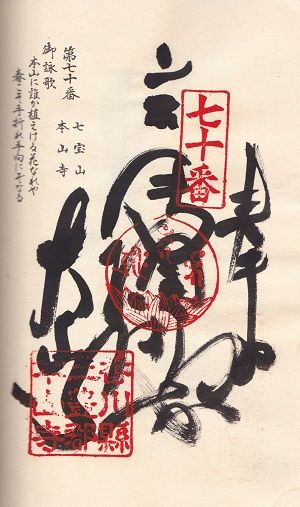 奉納
七十番
本山寺
香川縣
三豊郡
本山寺
七宝山
本山寺
第七十番
御詠歌
本山に誰か植えける花なれや
春こそ手折れ手向にぞなる